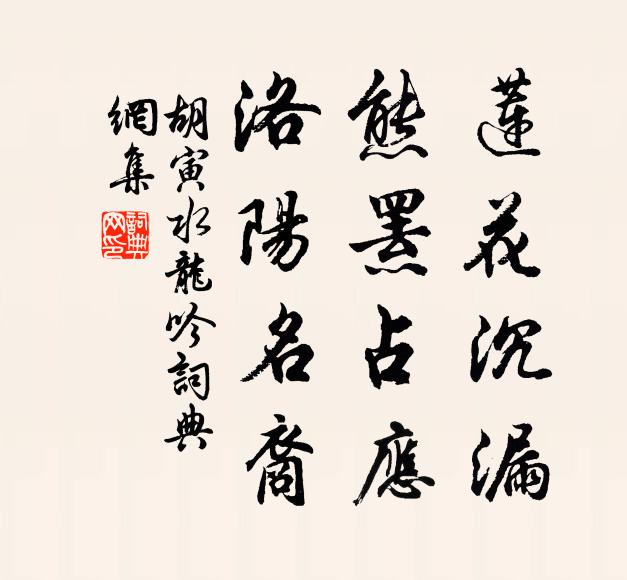 蓮花沉漏
熊羆占應
洛陽名裔
胡寅水龍吟詞典
網集
詞典
网印